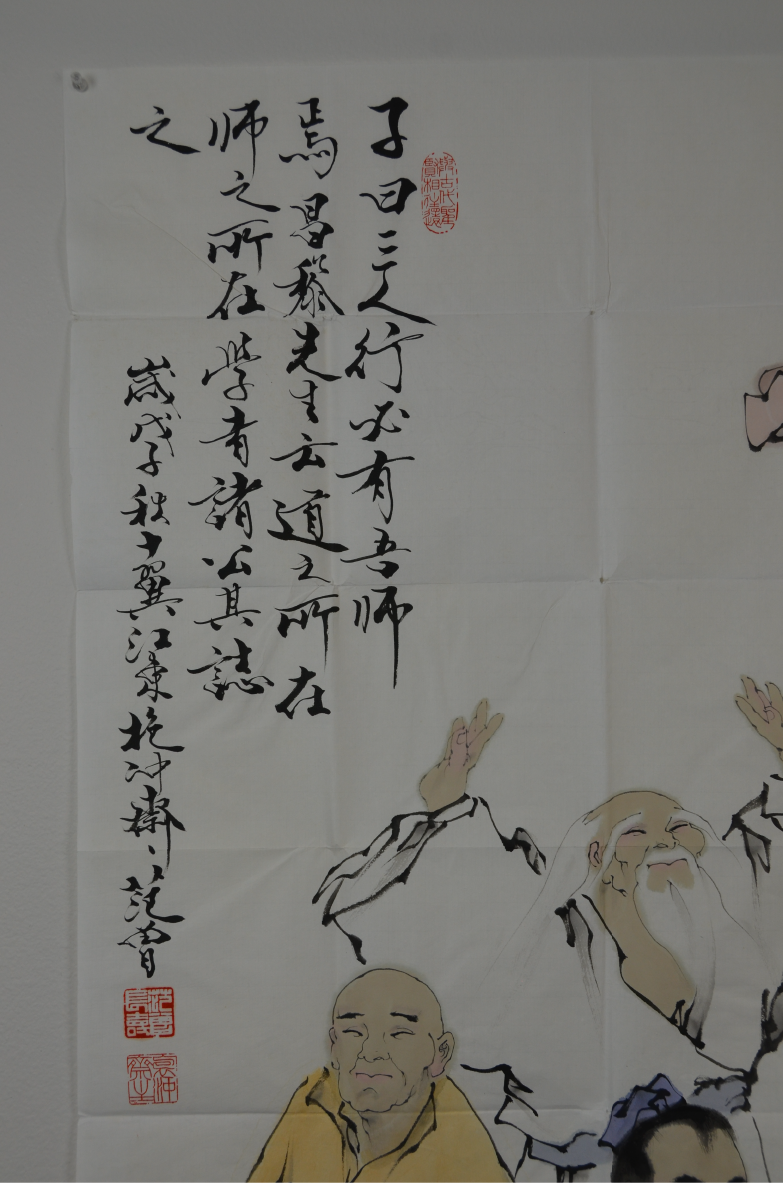 子曰三人行必有吾师
焉昌黎先生云道之所在
师之所在學者諸公其誌
之
歲戊子秋十翼江東抱冲齋范曾